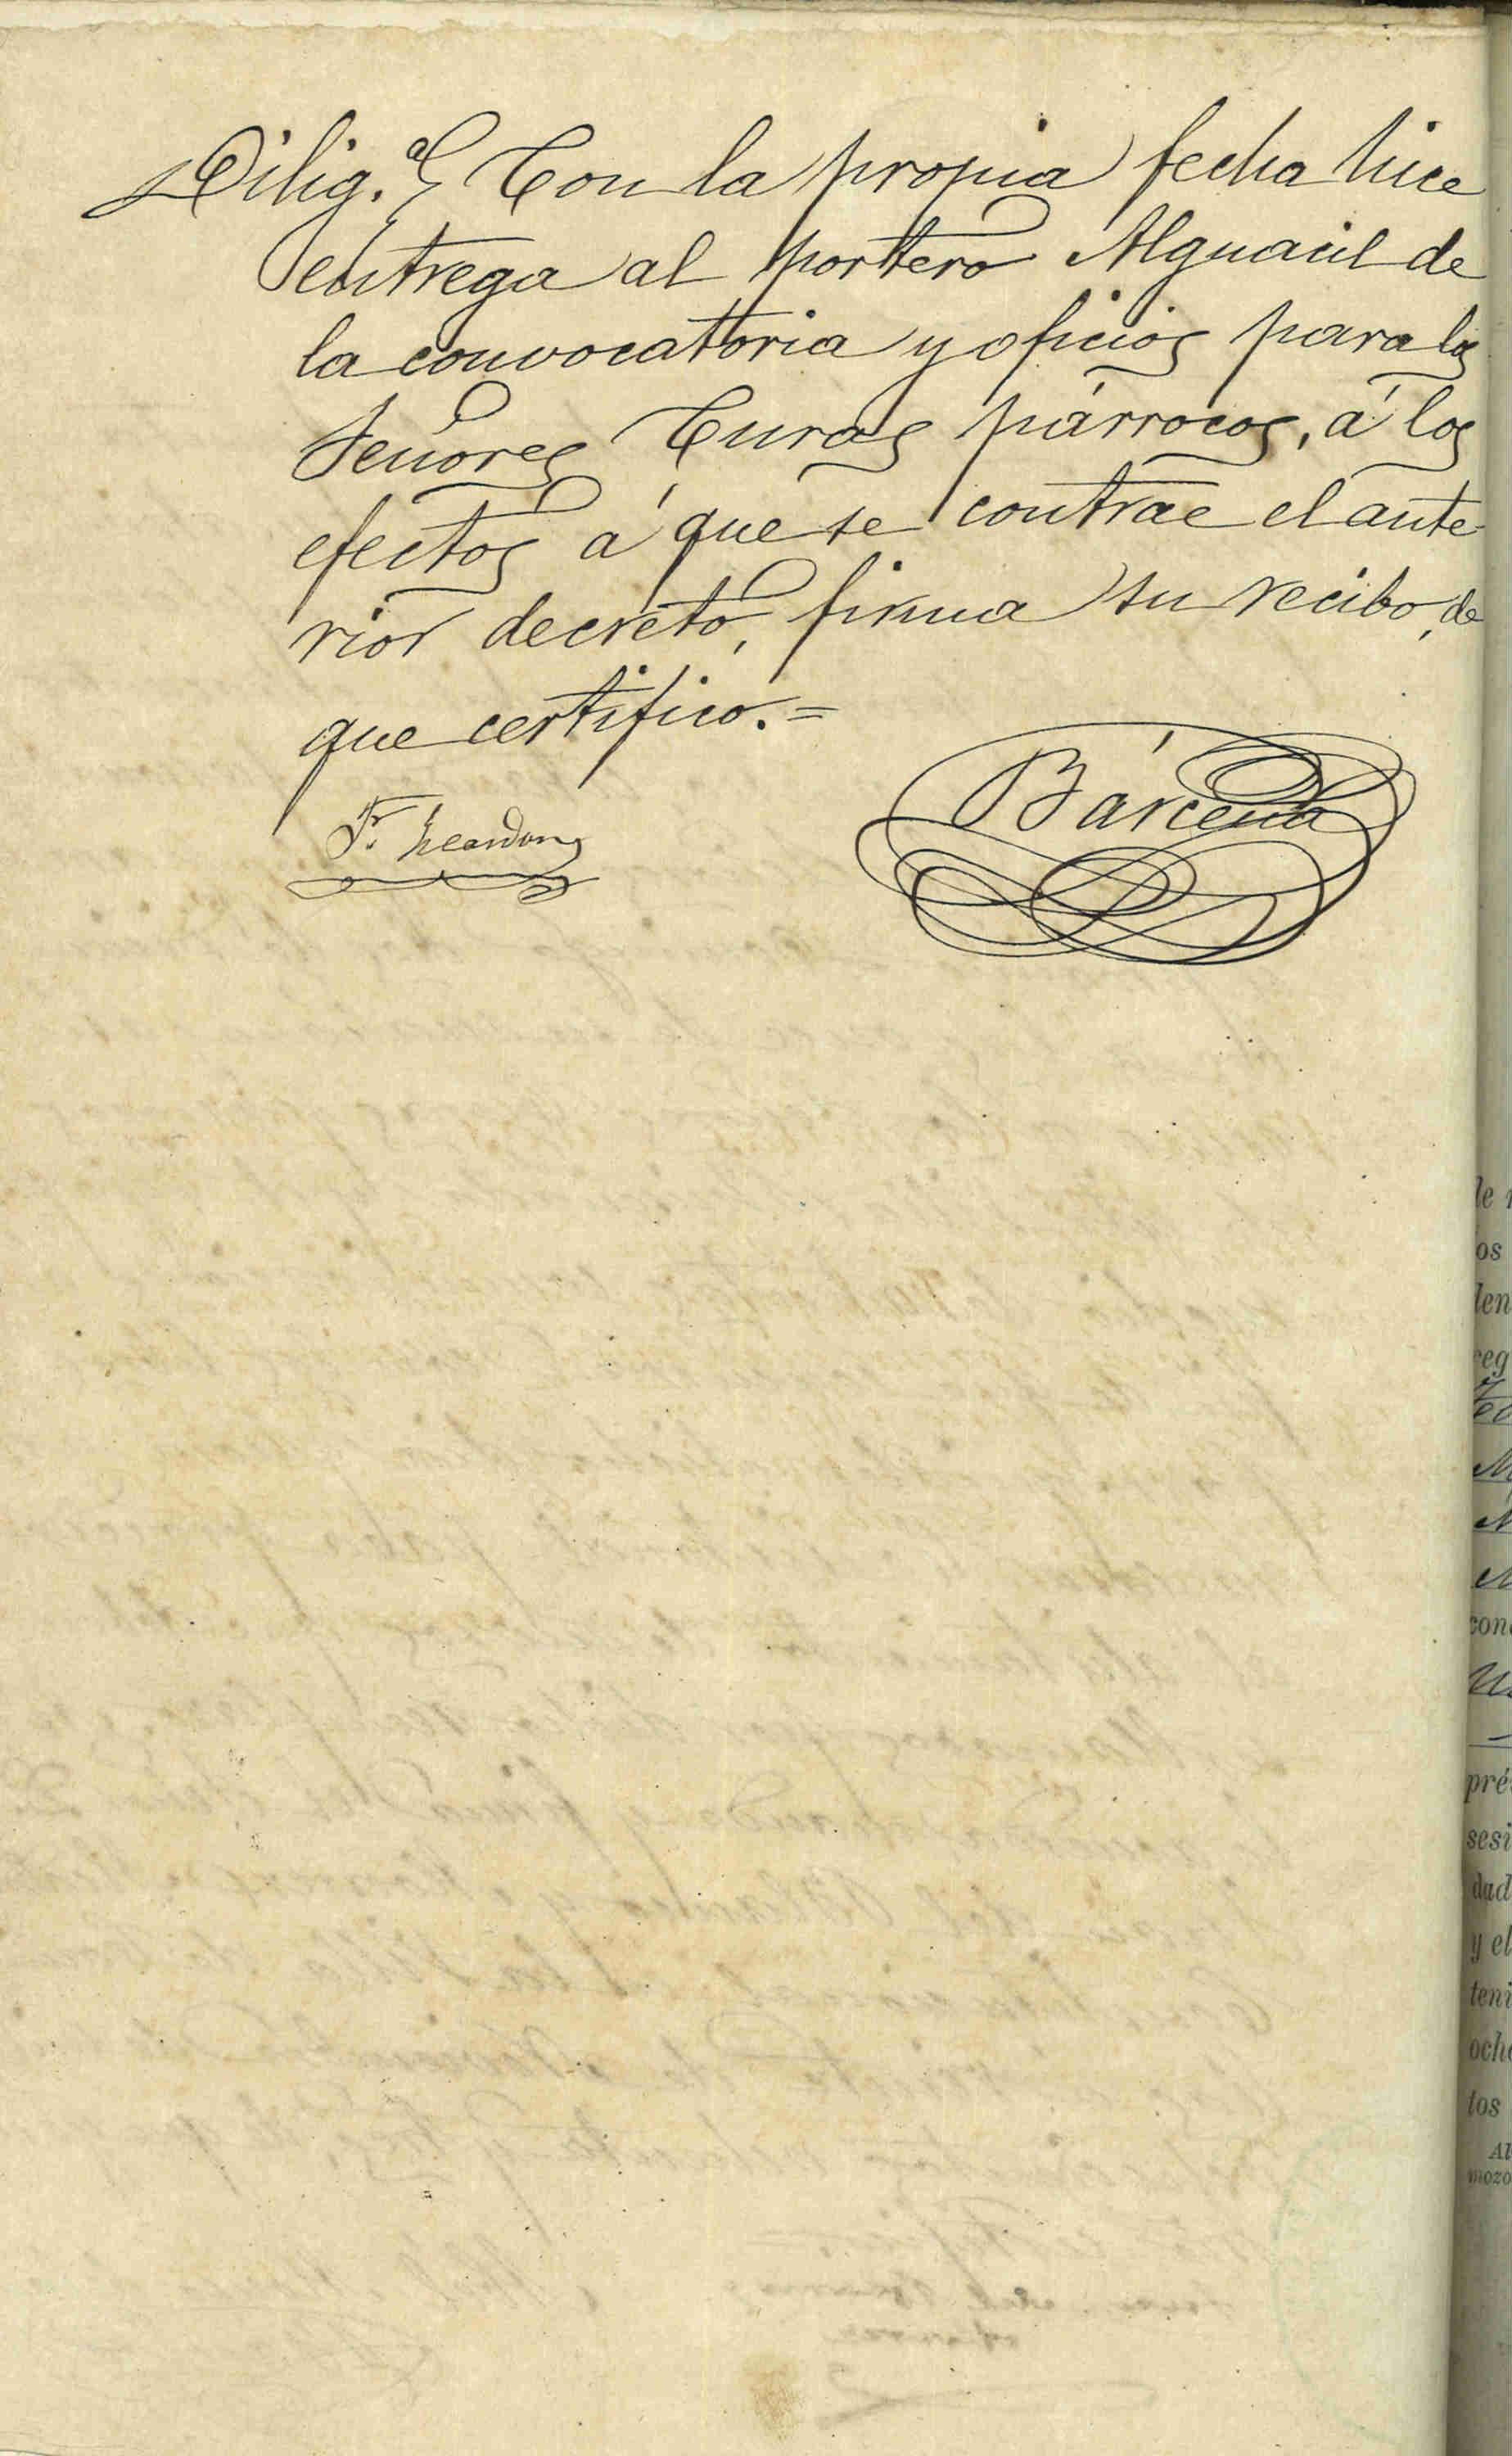 Dilig.ª} Con la propia fecha hice
entrega al portero Alguacil de
la convocatoria y oficios para los
Señores Curas párrocos, á los
efectos á que se contrae el ante-
rior decreto, firma su recibo, de
que certifico.=
Bárcena
le
os
den
reg
con
pré
sesi
dad
y el
teni
ocho
tos
Al
mozo